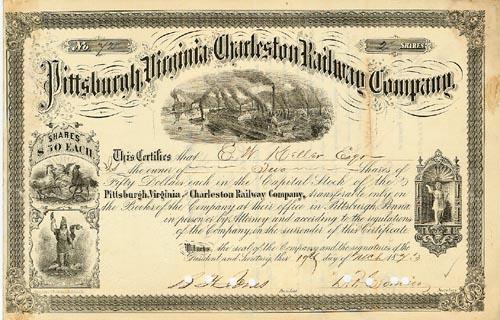 No 72 2 SHARES
Pittsburgh, Virginia and Charleston Railway Company,
SHARES
$50 EACH
This Certifies that E W
is the owner of Two Shares of
Fifty Dollars each in the Capital Stock of the
Pittsburgh, Virginia and Charleston Railway Company, transferable only on
the Books of the Company at their office in Pittsburgh, Penna
in person or by Attorney and according to the regulations
of the Company, on the surrender of this Certificate
Witness, the seal of the Company and the signatures of the
President and Secretary, this 19th day of 1873
President